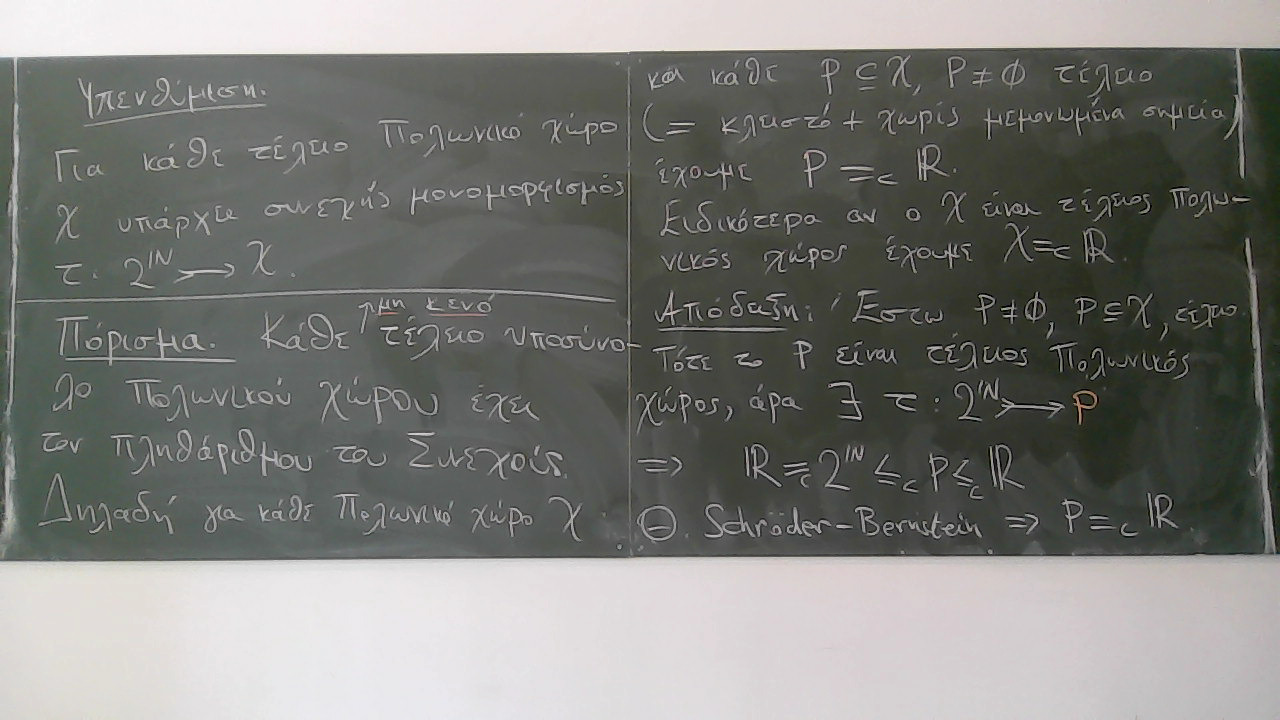 Υπενθύμιση.
Για κάθε τέλειο Πολωνικό χώρο
𝒳 υπάρχει συνεχής μονομορφισμός
τ: 2^ℕ ↣ 𝒳.
μη κενό
Πόρισμα. Κάθε τέλειο υποσύνο-
λο Πολωνικού χώρου έχει
τον πληθάριθμου του Συνεχούς.
Δηλαδή για κάθε Πολωνικό χώρο 𝒳
και κάθε P ⊆ 𝒳, P ≠ ∅ τέλειο
(= κλειστό + χωρίς μεμονωμένα σημεία)
έχουμε P =_c ℝ.
Ειδικότερα αν ο 𝒳 είναι τέλειος Πολω-
νικός χώρος έχουμε 𝒳 =_c ℝ.
Απόδειξη: Έστω P ≠ ∅, P ⊆ 𝒳, τέλειο.
Τότε το P είναι τέλειος Πολωνικός
χώρος, άρα ∃ τ: 2^ℕ ↣ P
⇒ ℝ =_c 2^ℕ ≤_c P ≤_c ℝ
Θ. Schröder-Bernstein ⇒ P =_c ℝ.